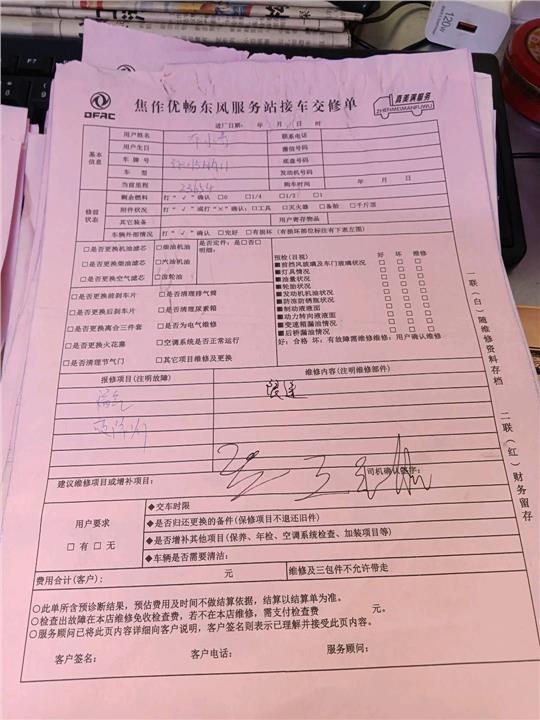 DFAC
焦作优畅东风服务站接车交修单
真美满服务
ZHENMEIMANFUWU
120W
进厂日期: 年 月 日 时
基本信息
用户姓名
联系电话
用户生日
微信号码
车牌号
底盘号码
车型
发动机号码
当前里程 23654
购车时间 年 月 日
修前状态
剩余燃料 打“√”确认 □0 □1/4 □1/2 □1
附件状况 打“√”或打“×”确认:□工具 □灭火器 □备胎 □千斤顶
其它装备
用户寄存物品
车辆外部情况 打“√”确认 □完好 □有损坏(有损坏部位标注有下表左图)
□是否更换机油滤芯 □柴油机油 是否定件:是□否□
□是否更换柴油滤芯 □汽油机油 明细:
□是否更换空气滤芯 □齿轮油
□是否更换前刹车片 □是否清理排气筒
□是否更换后刹车片 □是否清理尿素箱
□是否更换离合三件套 □是否为电气维修
□是否更换火花塞 □空调系统是否正常运行
□是否清理节气门 □其它项目维修及更换
预检(目视) 好 坏 维修
■前挡风玻璃及车门玻璃状况 □ □ □
■灯具情况 □ □ □
■油量状况 □ □ □
■轮胎状况 □ □ □
■发动机机油状况 □ □ □
■防冻防锈瓶状况 □ □ □
■制动液液面 □ □ □
■动力转向液液面 □ □ □
■变速箱漏油情况 □ □ □
■后桥漏油情况 □ □ □
好:合格 坏:有故障需维修维修:用户确认维修
报修项目(注明故障)
维修内容(注明维修部件)
限速
建议维修项目或增补项目:
司机确认签字:
用户要求
□有 □无
◆交车时限
◆是否归还更换的备件(保修项目不退还旧件)
◆是否增补其他项目(保养、年检、空调系统检查、加装项目等)
◆车辆是否需要清洁:
费用合计(客户): 元
维修及三包件不允许带走
○此单所含预诊断结果,预估费用及时间不做结算依据,结算以结算单为准。
○检查出故障在本店维修免收检查费,若不在本店维修,需支付检查费 元。
○服务顾问已将此页内容详细向客户说明,客户签名则表示已理解并接受此页内容。
客户签名: 客户电话: 服务顾问:
一联(白)随维修资料存档
二联(红)财务留存